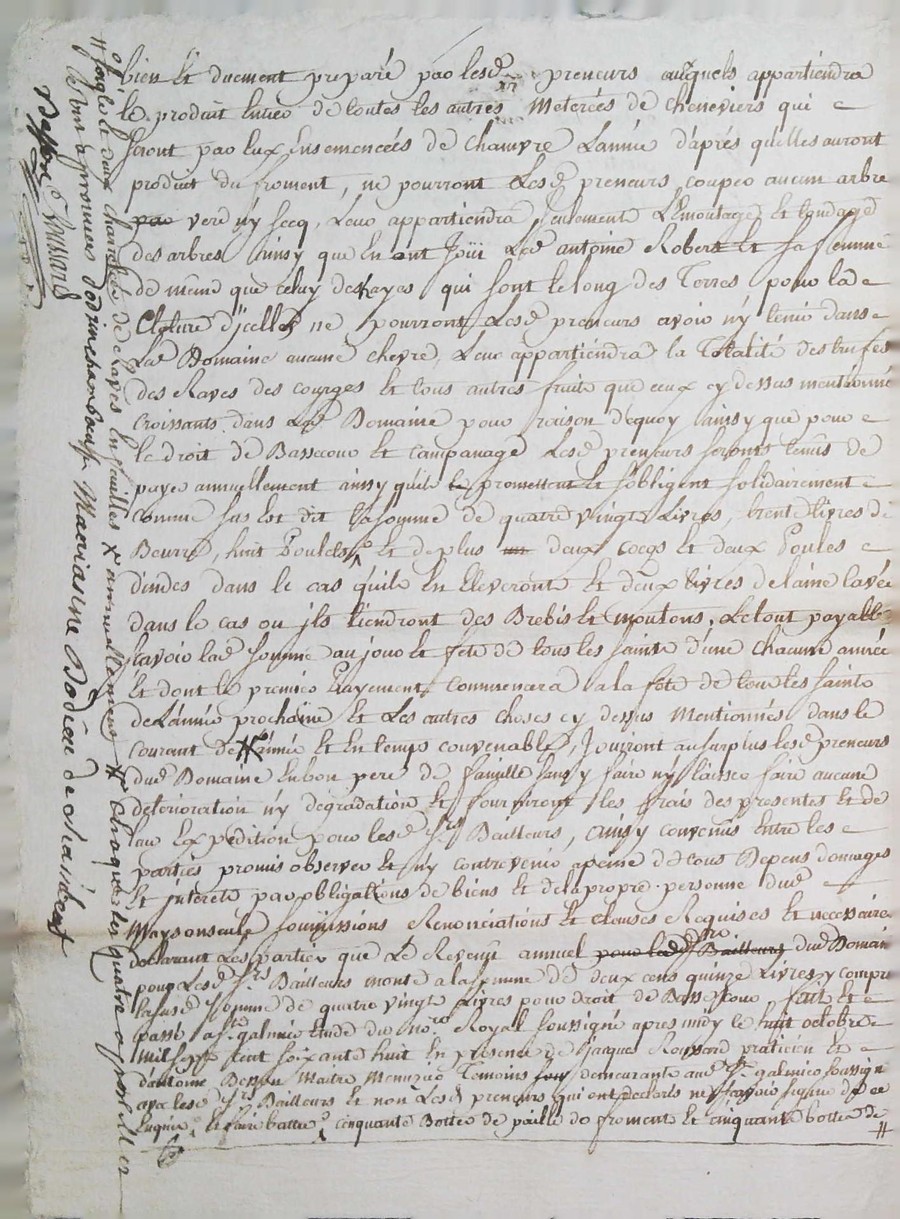 bien Et duement preparé par lesd preneurs auxquels appartiendra
le produit Entier de toutes les autres Meterées de Cheneviers qui
seront par Eux Ensemencées de Chanvre Lannée d'aprés quelles auront
produit du froment, ne pourront Lesd preneurs couper aucun arbre
verd n'y secq, Leur appartiendra seulement L'Emoutage Et tondage
des arbres ainsy que En ont Joüi Led antoine Robert Et sa femme
de même que celuy des hayes qui sont le long des Terres pour la
Cloture d'jcelles ne pourront Lesd preneurs avoir n'y tenir dans
Led Domaine aucune chevre, Leur appartiendra la Totalité des trufes
des Raves des courges Et tous autres fruits que ceux cy dessus mentionné
Croissants dans Led Domaine pour raison dequoy ainsy que pour
le droit de Bassecour Et Campanage Lesd preneurs seront tenus de
payer annuellement ainsy quils le promettent Et sobligent solidairement
comme sus Est dit la somme de quatre vingts Livres, trente Livres de
Beurre, huit Poulets Et de plus deux Coegs Et deux Poules
dindes dans le cas quils En Eleveront Et deux Livres de laine lavée
dans le cas ou jls tiendront des Brebis Et moutons, Le tout payable
scavoir lad somme au jour Et fete de tous les saints d'une chacune année
Et dont le premier Payement Commencera a la fete de tous les saints
de Lannée prochaine Et Les autres choses cy dessus Mentionnés dans le
Courant de # L'année Et En temps convenable, Jouiront au surplus lesd preneurs
dud Domaine En bon pere de famille sans y faire n'y laisser faire aucune
deterioration n'y degradation Et fourniront les frais des presentes Et de
leur Expedition pour lesd Srs Bailleurs, ainsy convenus Entre les
parties promis observer Et n'y contrevenir a peine de tous Depens domages
Et interets par obligations de biens Et de la propre personne dud
Maysonseule soumissions Renonciations Et clauses Requises Et necessaires
declarant Les parties que Le Revenu annuel pour lesd Srs Bailleurs dud Domaine
pour Lesd Srs Bailleurs monte a la somme de deux cens quinze Livres y compris
la susd somme de quatre vingts Livres pour droit de Bassecour, fait Et
passé a St galmier Etude du nore Royal soussigné apres midy le huit octobre
mil sept cent soixante huit En presence de Jacques Roussard praticien Et
d'antoine Besson Maitre Menuzier Temoins demeurants aud St galmier soussignés
avec lesd Srs Bailleurs Et non Lesd preneurs qui ont declarés ne scavoir signer de ce
Enquis, Et faire battre, cinquante Bottes de paille de froment Et cinquante bottes de #
# seigle Et deux charretées de Raves En feuilles x annuellement # chaque
Marianne Bodeau de